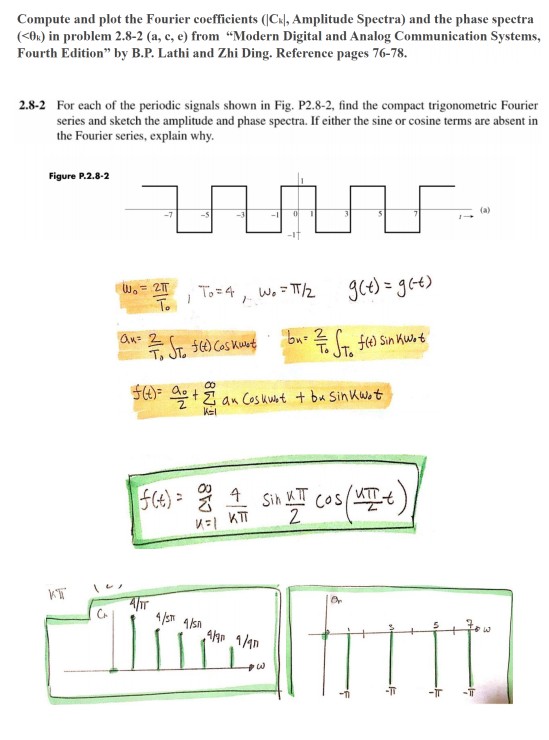 Compute and plot the Fourier coefficients (|Cₖ|, Amplitude Spectra) and the phase spectra
(<θₖ) in problem 2.8-2 (a, c, e) from “Modern Digital and Analog Communication Systems,
Fourth Edition” by B.P. Lathi and Zhi Ding. Reference pages 76-78.
2.8-2 For each of the periodic signals shown in Fig. P2.8-2, find the compact trigonometric Fourier
series and sketch the amplitude and phase spectra. If either the sine or cosine terms are absent in
the Fourier series, explain why.
Figure P.2.8-2
1
-7 -5 -3 -1 0 1 3 5 7 t→ (a)
-1
ω₀ = 2π/T₀ , T₀=4 , ω₀ = π/2 g(t) = g(-t)
aₖ= 2/T₀ ∫T₀ f(t) Cos kω₀t bₖ= 2/T₀ ∫T₀ f(t) Sin kω₀t
f(t)= a₀/2 + ∞ Σ k=1 aₖ Cos kω₀t + bₖ Sin kω₀t
f(t) = ∞ Σ k=1 4/kπ Sin kπ/2 cos(kπ/2 t)
kπ
Cₙ 4/π 4/5π 4/5π 4/9π 4/9π ω
θₙ 1 3 5 7 ω
-π -π -π -π